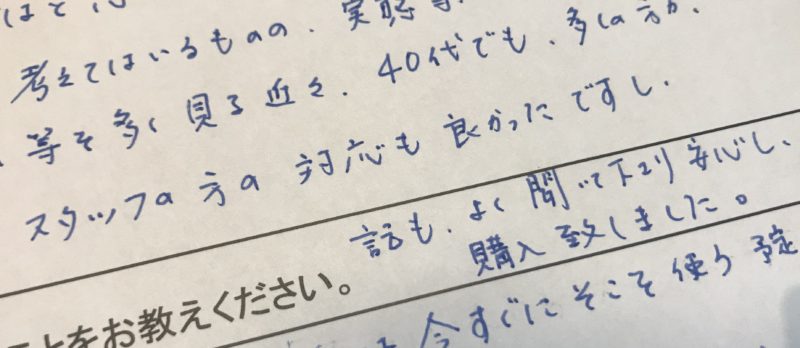 考えてはいるものの、実際
等を多く見る近々、40代でも、多くの方が、
スタッフの方の対応も良かったですし、
話も、よく聞いて下さり安心し、
購入致しました。
ことをお教えください。
今すぐにそこそこ使う予定